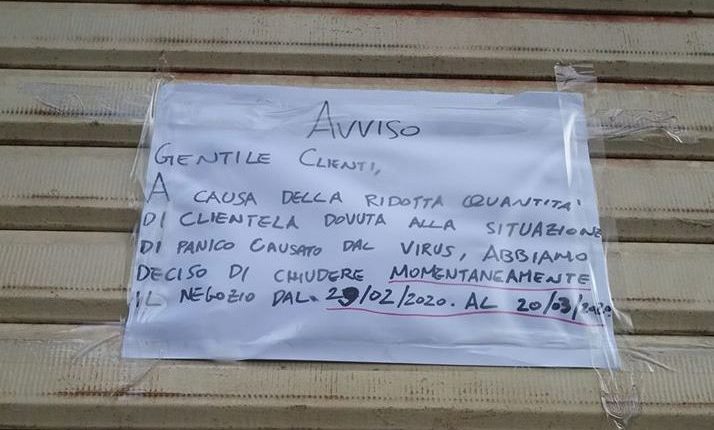 AVVISO
GENTILE CLIENTI,
A CAUSA DELLA RIDOTTA QUANTITA'
DI CLIENTELA DOVUTA ALLA SITUAZIONE
DI PANICO CAUSATO DAL VIRUS, ABBIAMO
DECISO DI CHIUDERE MOMENTANEAMENTE
IL NEGOZIO DAL. 29/02/2020. AL 20/03/2020.